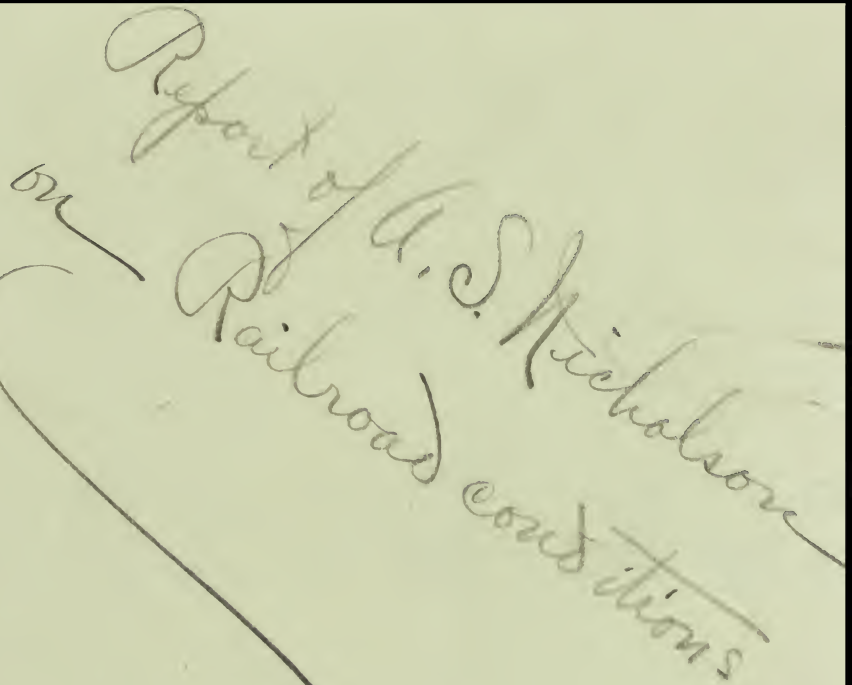 Report of A. S. Nicholson
on Railroad conditions